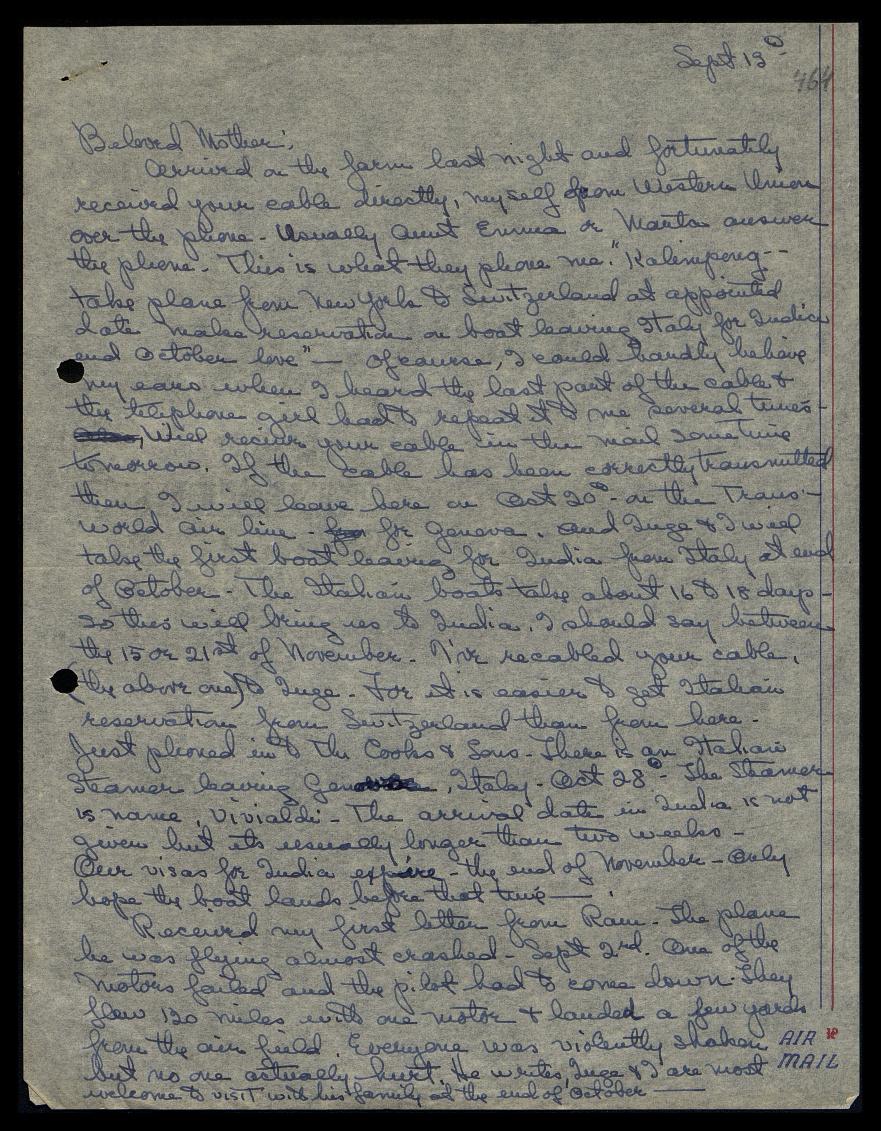 Sept 13th
464
Beloved Mother:
Arrived on the farm last night and fortunately
received your cable directly, myself from Western Union
over the phone - Usually Aunt Emma or Manta answer
the phone - This is what they phone me: "Kalimpong --
take plane from New York to Switzerland at appointed
date make reservation on boat leaving Italy for India
end October love" — Of course, I could hardly believe
my ears when I heard the last part of the cable &
the telephone girl had to repeat it to me several times -
Will receive your cable in the mail sometime
tomorrow. If the cable has been correctly transmitted
then I will leave here on Oct 20th - on the Trans -
World air line - for Geneva. and Inge & I will
take the first boat leaving for India from Italy at end
of October - The Italian boats take about 16 to 18 days -
so this will bring us to India, I should say between
the 15 or 21st of November - I've recabled your cable,
(the above one) to Inge - For it is easier to get Italian
reservation from Switzerland than from here -
Just phoned in to Th Cooks & Sons - There is an Italian
Steamer leaving Genova, Italy - Oct 28th - The Steamer
is name, Vivialdi - The arrival date in India is not
given but its usually longer than two weeks -
Our visas for India expire - the end of November - Only
hope the boat lands before that time —
Received my first letter from Ram - The plane
he was flying almost crashed - Sept 2nd. One of the
motors failed and the pilot had to come down. They
flew 120 miles with one motor & landed a few yards
from the air field. Everyone was violently shaken
but no one actually hurt. He writes, Inge & I are most
welcome to visit with his family at the end of October —
AIR
MAIL